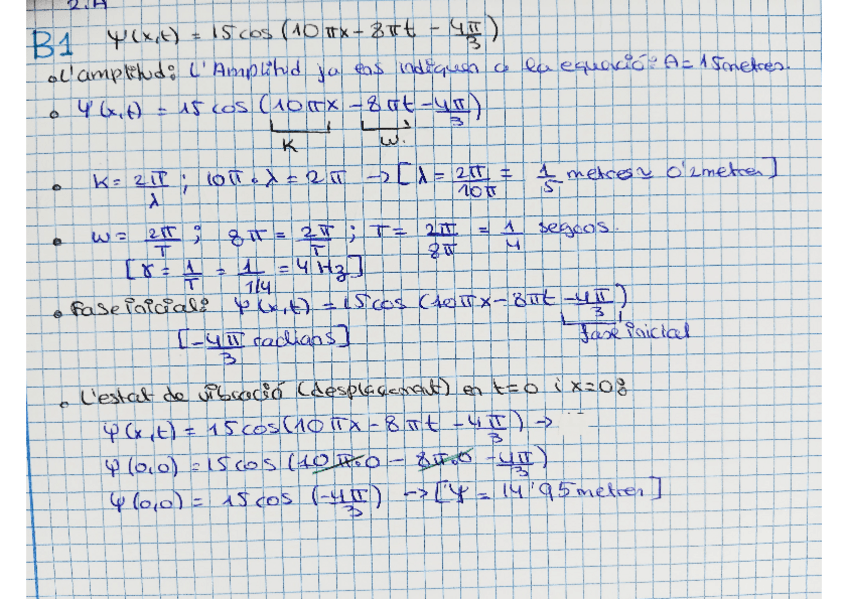 B1 ψ(x,t) = 15 cos (10πx - 8πt - 4π/3)
• L'amplitud: L'Amplitud ja ens indiquen a la equació: A = 15 metres.
• ψ(x,t) = 15 cos (10πx - 8πt - 4π/3)
K W.
• K = 2π/λ ; 10π·λ = 2π → [λ = 2π/10π = 1/5 metres ≈ 0'2 metres]
• ω = 2π/T ; 8π = 2π/T ; T = 2π/8π = 1/4 segons.
[γ = 1/T = 1/1/4 = 4 Hz]
• Fase inicial: ψ(x,t) = 15 cos (10πx - 8πt - 4π/3)
[-4π/3 radians] fase inicial
• L'estat de vibració (desplaçament) en t=0 i x=0:
ψ(x,t) = 15 cos (10πx - 8πt - 4π/3) →
ψ(0,0) = 15 cos (10π·0 - 8π·0 - 4π/3)
ψ(0,0) = 15 cos (-4π/3) → [ψ = 14'95 metres]